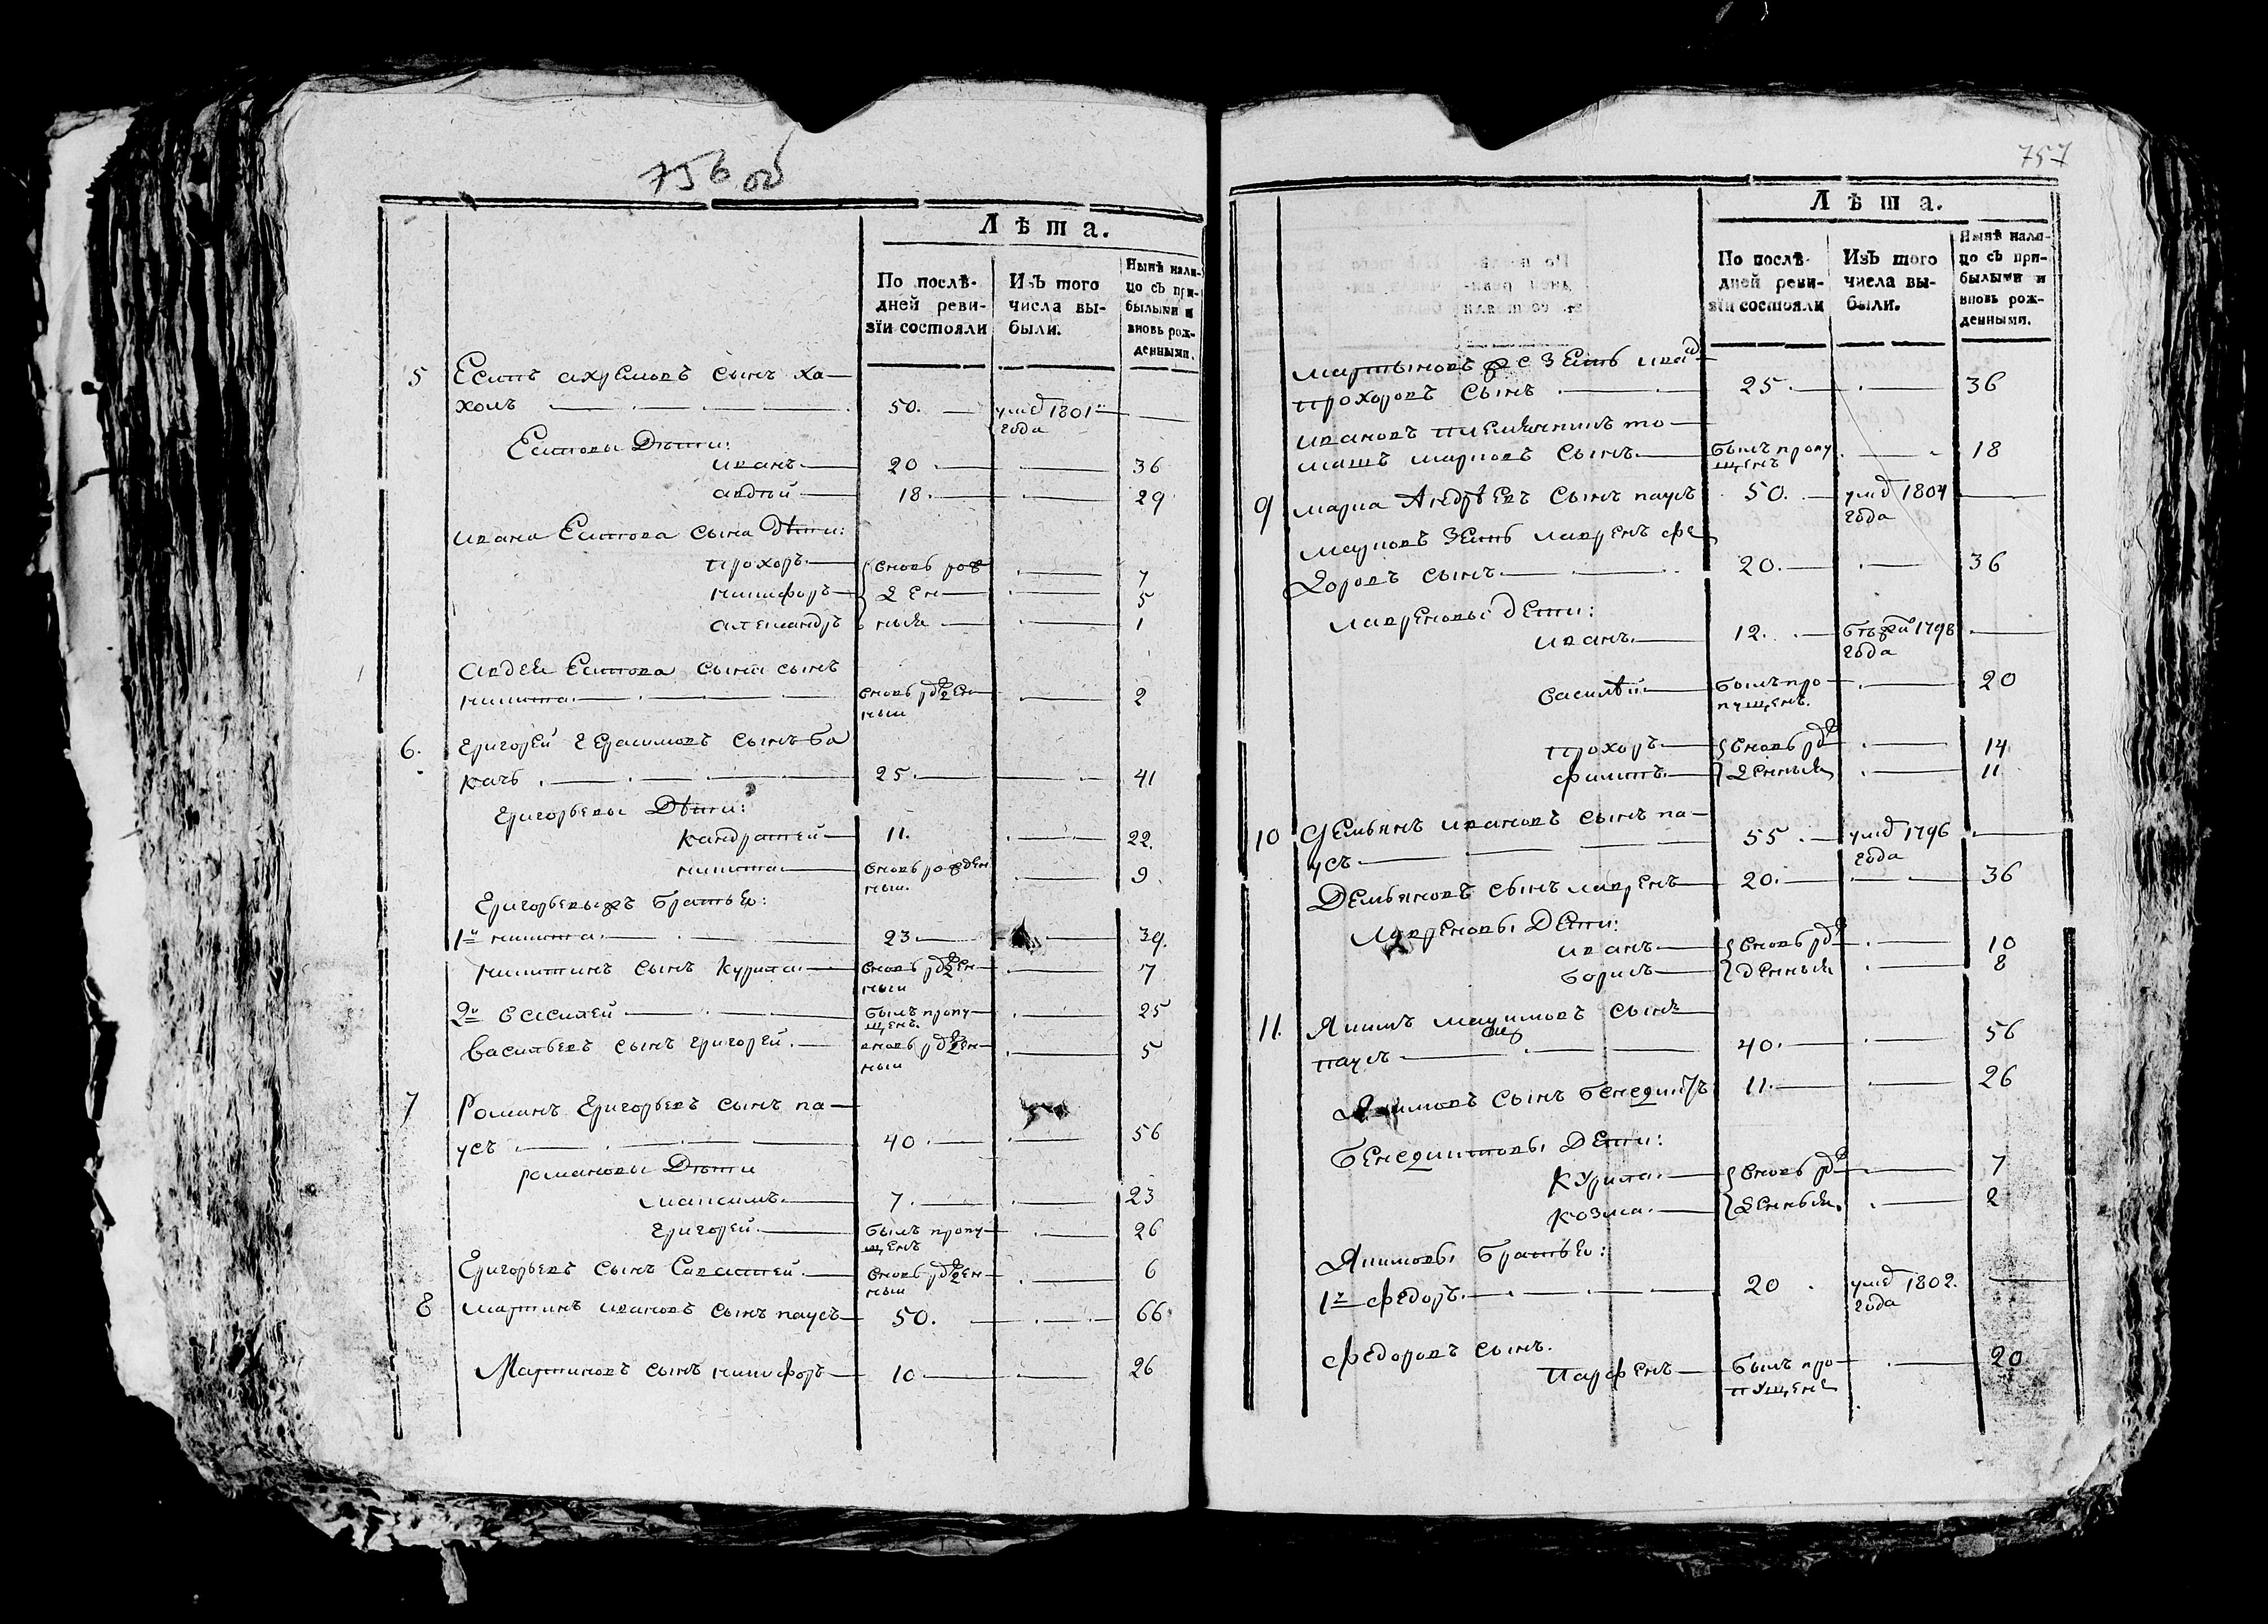 756 об
Лѣта.
По послѣ-
дней реви-
зіи состояли
Изъ того
числа вы-
были.
Нынѣ нали-
цо съ при-
былыми и
вновь рож-
денными.
5 Есипъ ахремовъ сынъ ха-
хомъ 50. умед 1801го
года
Есиповы Дѣти:
иванъ 20 36
авдѣй 18. 29
ивана Есипова сына Дѣти:
прохоръ вновь рож 7
никифоръ ден 5
александръ ныя 1
Авдея Есипова сына сынъ
никита вновь рожден 2
ныи
6. Григорей Герасимовъ сынъ ба
качь 25. 41
Григорьевы Дѣти:
кандратей 11. 22.
никита вновь рожден 9
ныи.
Григорьевыхъ братья:
1й никита 23 39.
никитинъ сынъ курила вновь рожден 7
ныи
2й василей былъ пропу 25
щенъ.
васильевъ сынъ григорей вновь рожден 5
ныи
7 Романъ Григорьевъ сынъ па-
усъ 40 56
романовы Дѣти
максимъ 7. 23
Григорей былъ пропу 26
щенъ
Григорьевъ сынъ Савастей вновь рожден 6
ныи
8 мартинъ ивановъ сынъ паусъ 50. 66
Мартиновъ сынъ никифоръ 10 26
757
Лѣта.
По послѣ-
дней реви-
зіи состояли
Изъ того
числа вы-
были.
Нынѣ нали-
цо съ при-
былыми и
вновь рож-
денными.
мартыновъ же зеть иванъ
прохоровъ сынъ 25 36
ивановъ племянникъ то-
машъ марковъ сынъ былъ пропу 18
щенъ
9 марка Андрѣевъ сынъ паусъ 50. умед 1804
года
марковъ зеть лавренъ фе
доровъ сынъ 20. 36
лавреновы дети:
иванъ 12. бежал 1798
года
василѣй былъ про 20
пущенъ.
прохоръ вновь рож 14
филипъ денныя 11
10 Демьянъ ивановъ сынъ па-
усъ 55 умед 1796
года
Демьяновъ сынъ лавренъ 20. 36
Лавреновы Дети:
иванъ вновь рож 10
борисъ денныя 8
11. Якимъ максимовъ сынъ
паусъ 40. 56
Якимовъ сынъ бенедиктъ 11. 26
Бенедиктовы Дети:
курила вновь рож 7
козма денныя. 2
Якимовы братья:
1й федоръ 20 умед 1802.
года
Федоровъ сынъ.
парфенъ былъ про 20
пущенъ